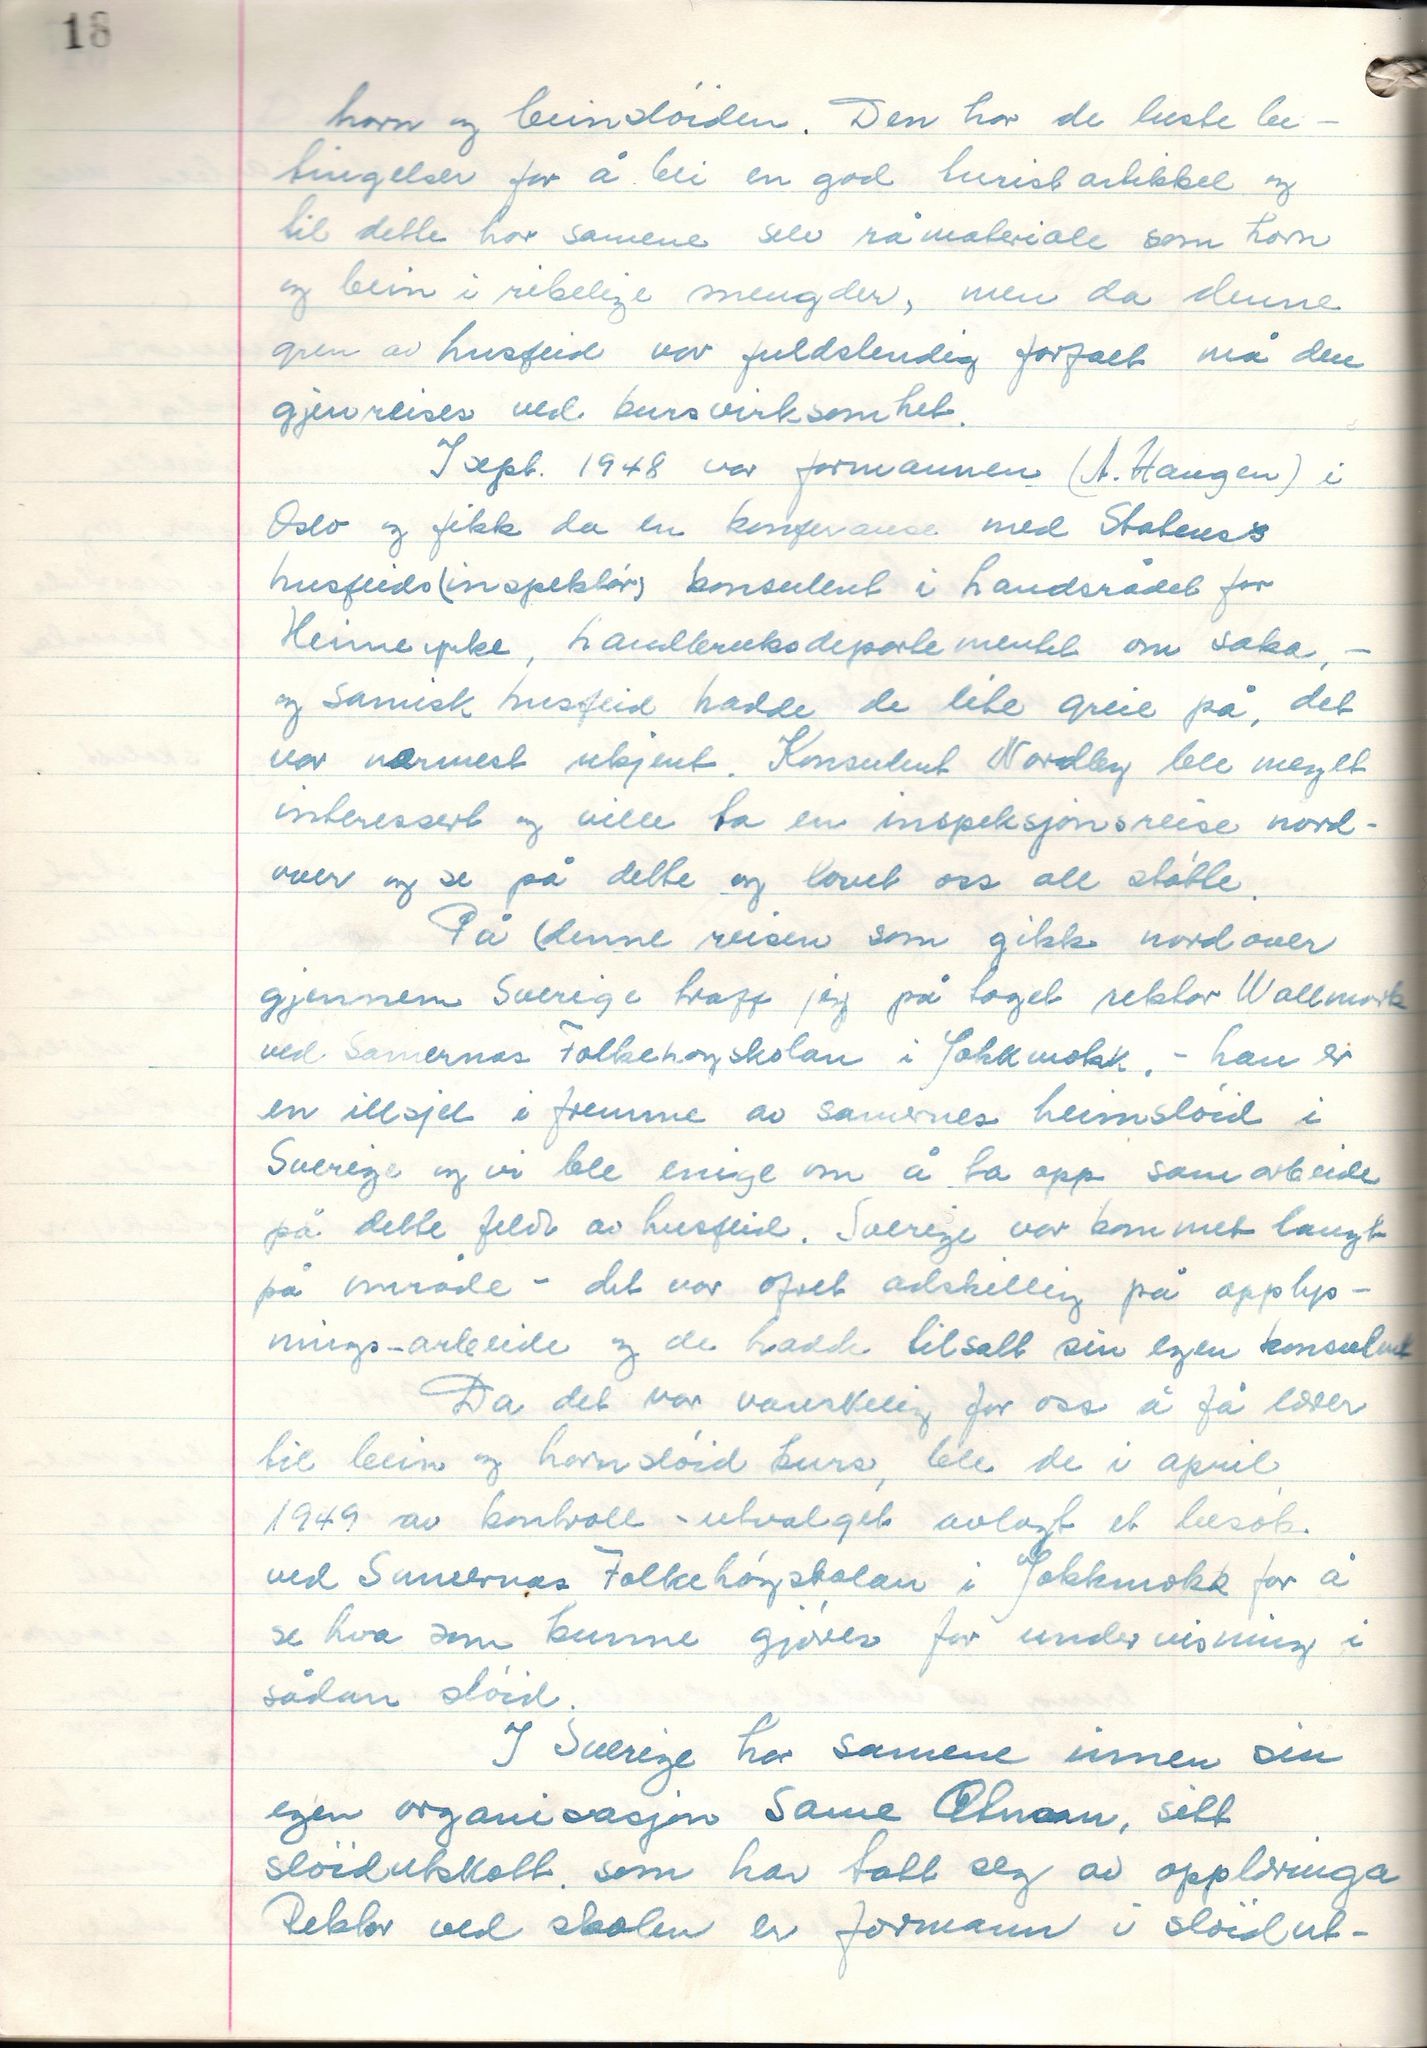 18
horn og beinslöiden. Den har de beste be-
tingelser for å bli en god turistartikkel og
til dette har samene selv råmateriale som horn
og bein i rikelige mengder, men da denne
gren av husflid var fuldstendig forfalt må den
gjenreises ved kursvirksomhet.
I sept. 1948 var formannen (A. Haugen) i
Oslo og fikk da en konferanse med Statens
husflids (inspektör) konsulent i Landsrådet for
Heimeyrke, Landbruksdepartementet om saka, -
og samisk husflid hadde de lite greie på, det
var nærmest ukjent. Konsulent Nordby ble meget
interessert og ville ta en inspeksjonsreise nord-
over og se på dette og lovet oss all stötte.
På (denne reisen som gikk nordover
gjennem Sverige traff jeg på toget rektor Wallmark
ved Samernas Folkehøgskolan i Jokkmokk, - han er
en illsjel i fremme av samernes heimslöid i
Sverige og vi ble enige om å ta opp samarbeide
på dette feldt av husflid. Sverige var kommet langt
på område - det var ofret adskillig på opplys-
nings-arbeide og de hadde tilsatt sin egen konsulent
Da det var vanskelig for oss å få lærer
til bein og hornslöid kurs, ble de i april
1949 av kontroll-utvalget avlagt et besök
ved Samernas Folkehögskolan i Jokkmokk for å
se hva som kunne gjöres for undervisning i
sådan slöid.
I Sverige har samene innen sin
egen organisasjon Same Ätnam, sitt
slöidutskott som har tatt seg av opplæringa
Rektor ved skolen er formann i slöidut-